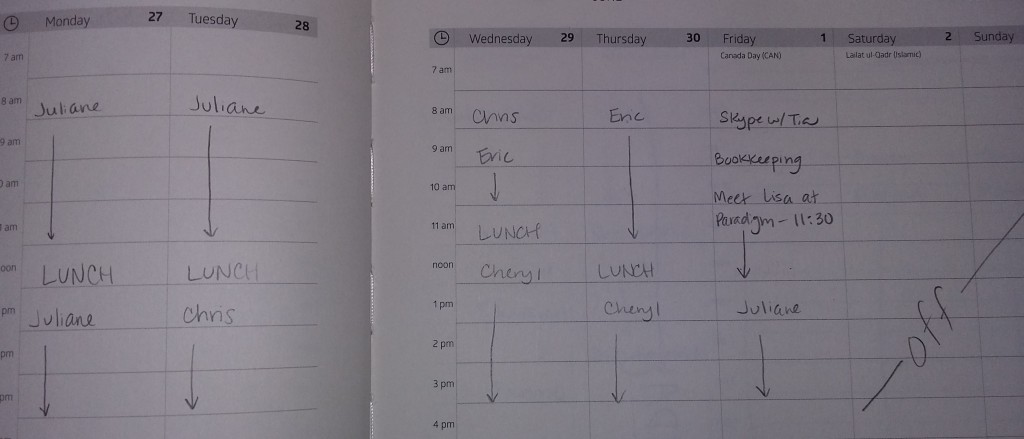 Monday 27 Tuesday 28
7 am
8 am Juliane Juliane
9 am
am
am
LUNCH LUNCH
pm Juliane Chris
pm
pm
Wednesday 29 Thursday 30 Friday 1 Saturday 2 Sunday
Canada Day (CAN) Lailat ul-Qadr (Islamic)
7 am
8 am Chris Eric Skype w/ Tia
9 am Eric Bookkeeping
10 am Meet Lisa at
11 am LUNCH Paradigm - 11:30
noon Cheryl LUNCH
1 pm Cheryl Juliane
2 pm
off
3 pm
4 pm